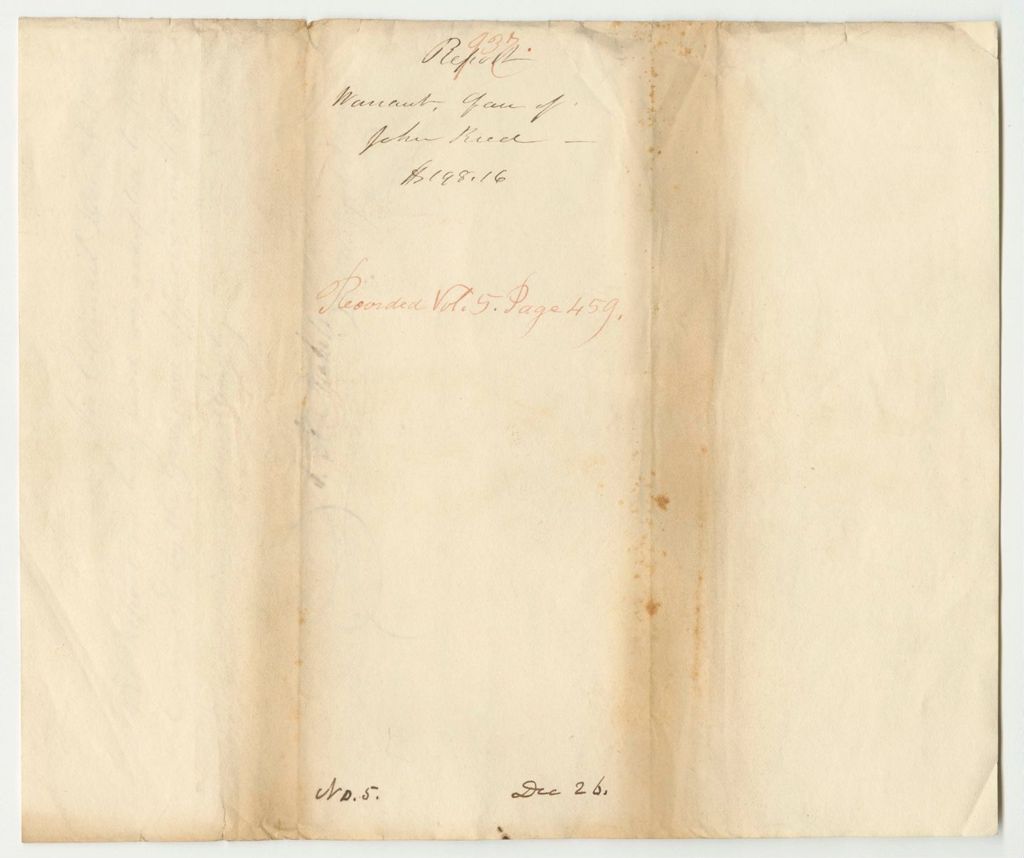 937.
Report
Warrant, favr of
John Reed —
$198.16
Recorded Vol. 5. Page 459.
No. 5. Dec 26.